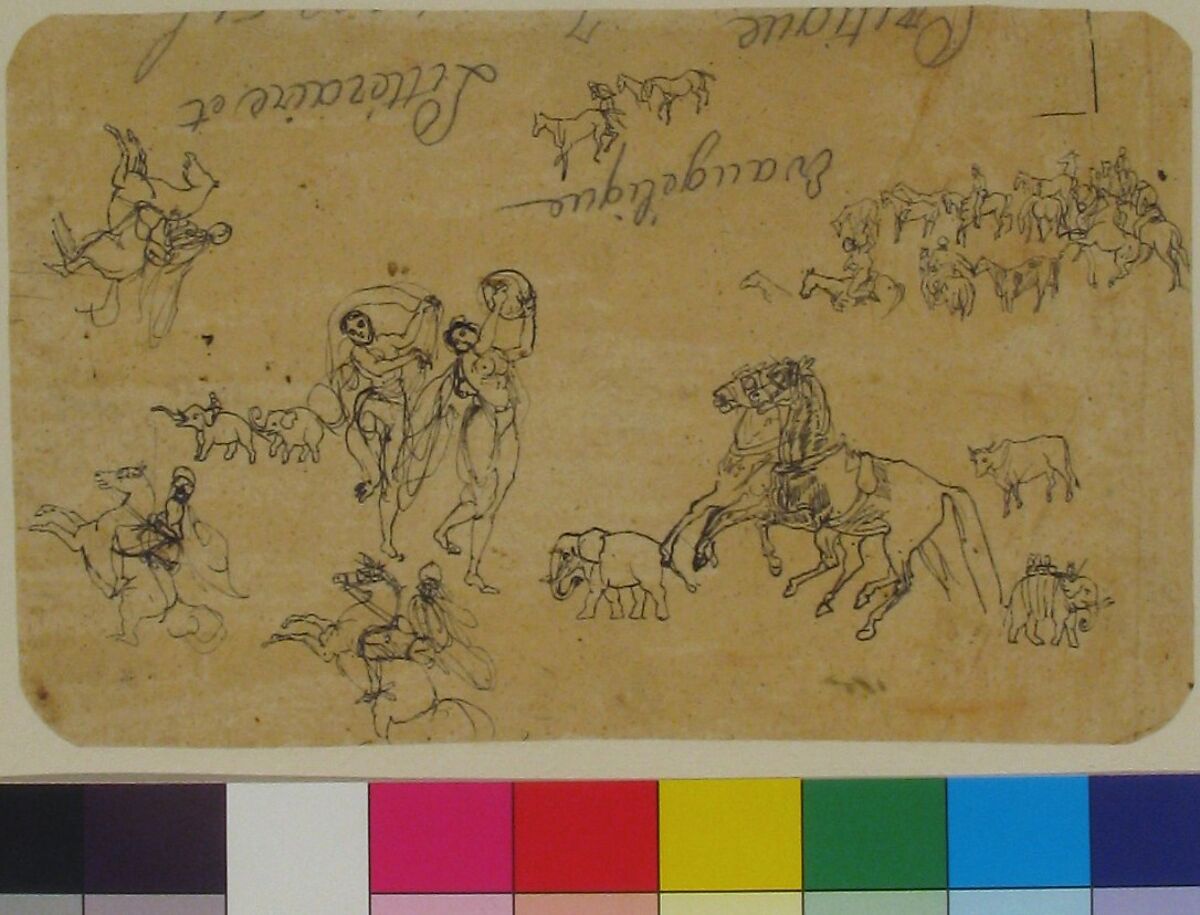 Evangélique
Littéraire et
Critique